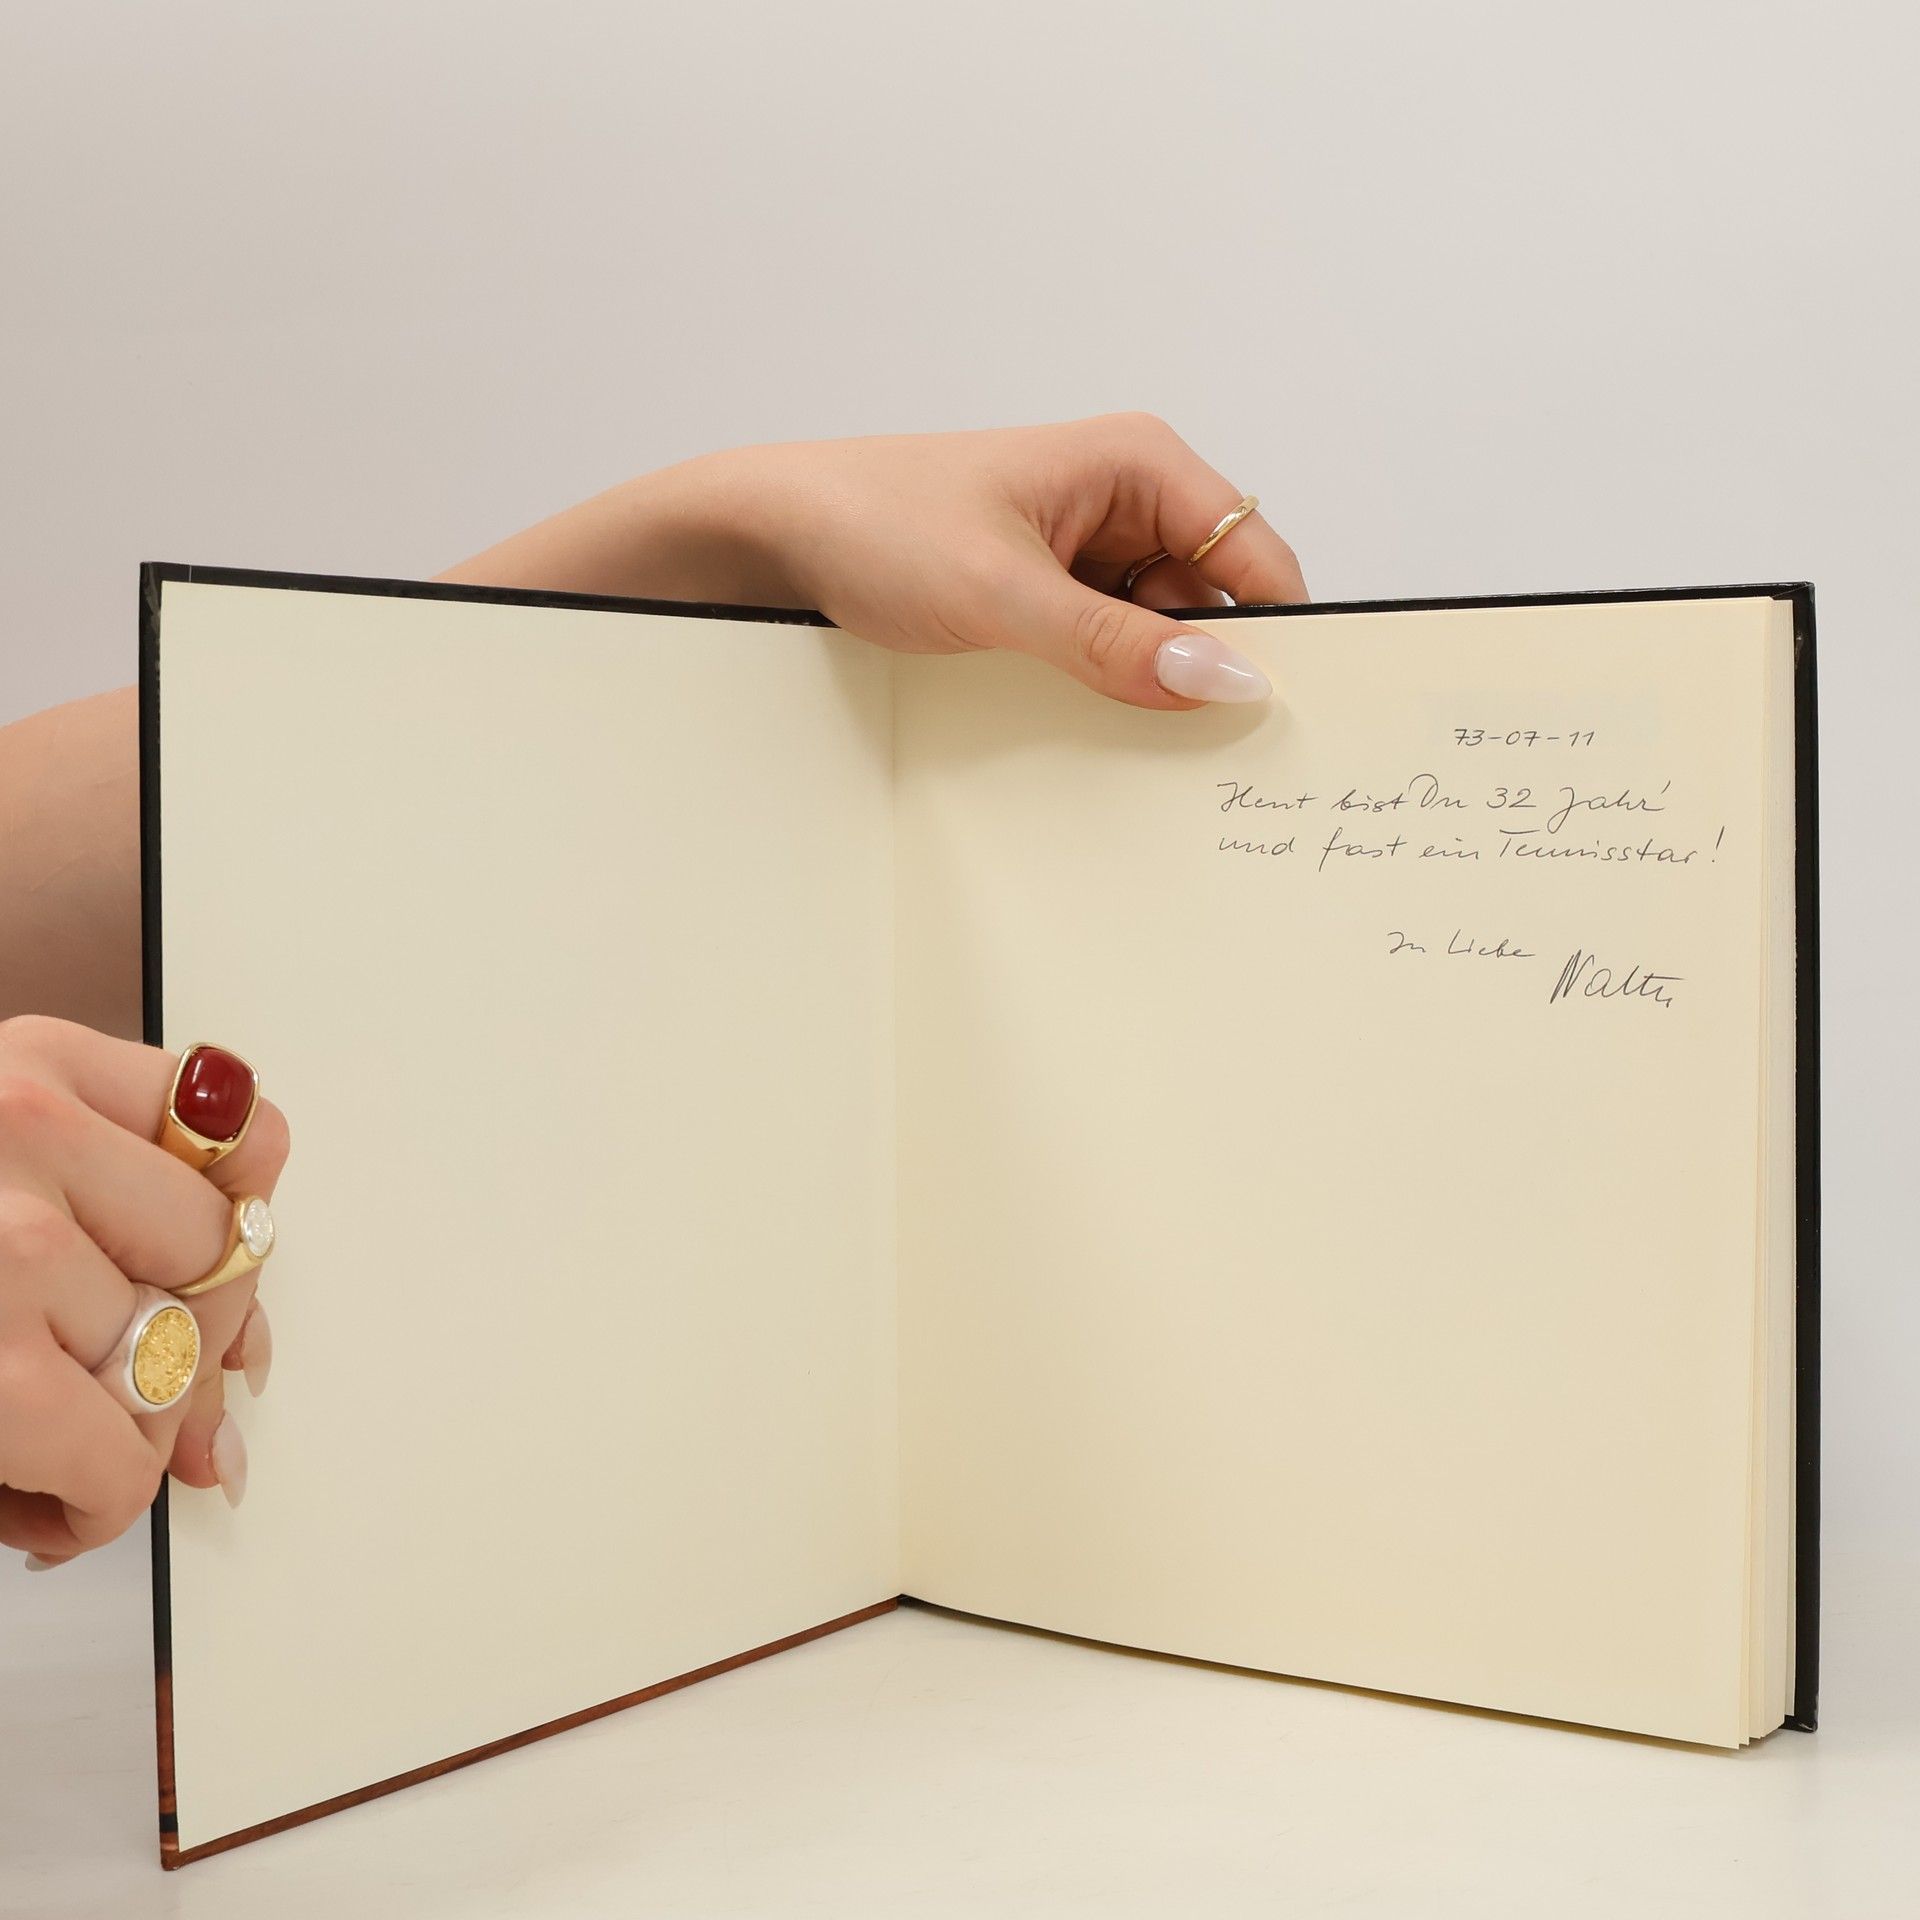 73-07-11
Heut bist Du 32 Jahr'
und fast ein Tennisstar!
In Liebe
Walter